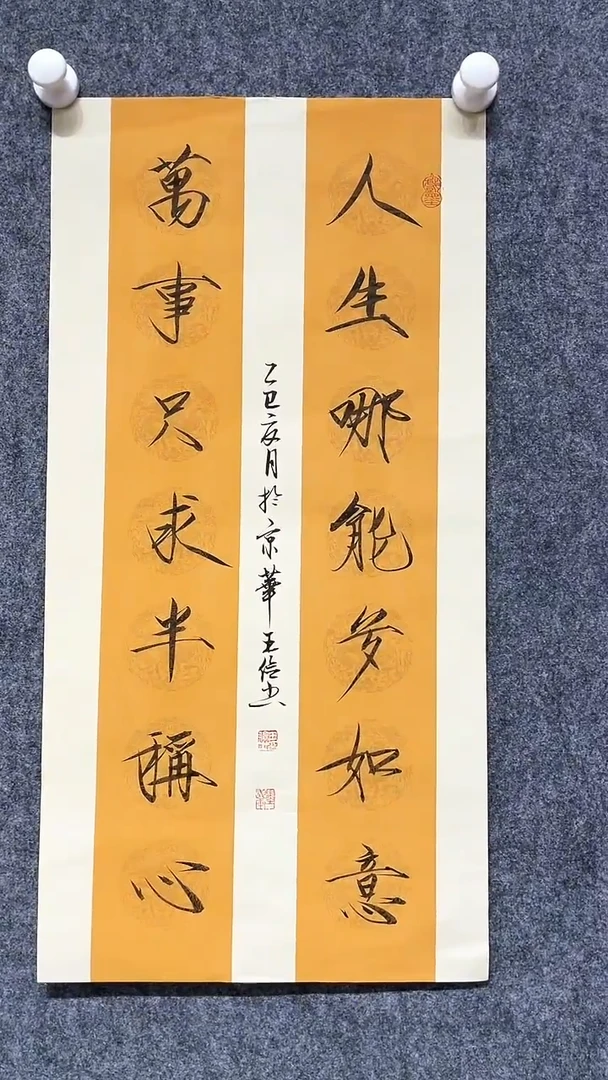 人生哪能多如意
萬事只求半稱心
乙巳亥月於京華王信